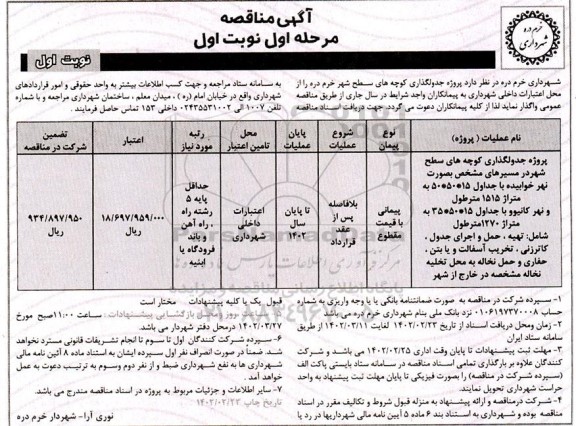 آگهی مناقصه
مرحله اول نوبت اول
نوبت اول
خرم دره
شهرداری
شهرداری خرم دره در نظر دارد پروژه جدولگذاری کوچه های سطح شهر خرم دره را از
محل اعتبارات داخلی شهرداری به پیمانکاران واجد شرایط در سال جاری از طریق مناقصه
عمومی واگذار نماید لذا از کلیه پیمانکاران دعوت می گردد. جهت دریافت اسناد مناقصه
به سامانه ستاد مراجعه و جهت کسب اطلاعات بیشتر به واحد حقوقی و امور قراردادهای
شهرداری واقع در خیابان امام (ره) ، میدان معلم ، ساختمان شهرداری مراجعه و با شماره
تلفن ۱۰۰۷ الی ۰۲۴۳۵۵۳۱۰۰۲ داخلی ۱۵۳ تماس حاصل فرمایند .
نام عملیات ( پروژه )
نوع پیمان
شروع عملیات
پایان عملیات
محل تامین اعتبار
رتبه مورد نیاز
اعتبار
تضمین شرکت در مناقصه
پروژه جدولگذاری کوچه های سطح
شهر در مسیرهای مشخص بصورت
نهر خوابیده با جداول ۱۵*۵۰*۵۰ به
متراژ ۱۵۱۵ مترطول
و نهر کانیوو با جداول ۱۵*۵۰*۳۵ به
متراژ ۱۲۷۰مترطول
شامل: تهیه ، حمل و اجرای جدول ،
کاترزنی ، تخریب آسفالت و یا بتن ،
حفاری و حمل نخاله به محل تخلیه
نخاله مشخصه در خارج از شهر
پیمانی با قیمت مقطوع
بلافاصله پس از عقد قرارداد
تا پایان سال ۱۴۰۲
اعتبارات داخلی شهرداری
حداقل پایه ۵ رشته راه ، راه آهن و باند فرودگاه یا ابنیه
۱۸/۶۹۷/۹۵۹/۰۰۰ ریال
۹۳۴/۸۹۷/۹۵۰ ریال
۱- سپرده شرکت در مناقصه به صورت ضمانتنامه بانکی یا یا وجه واریزی به شماره
حساب ۰۱۰۶۱۹۷۳۷۰۰۰۸ نزد بانک ملی بنام شهرداری خرم دره می باشد
۲- زمان ومحل دریافت اسناد از تاریخ ۱۴۰۲/۰۲/۲۳ لغایت ۱۴۰۲/۰۳/۱۱ از طریق
سامانه ستاد ایران
۳- مهلت ثبت پیشنهادات تا پایان وقت اداری ۱۴۰۲/۰۲/۲۵ می باشد و شرکت
کنندگان علاوه بر بارگذاری تمامی اسناد مناقصه در سامانه ستاد بایستی پاکت الف
(سپرده شرکت در مناقصه) را بصورت فیزیکی تا پایان مهلت ثبت پیشنهاد به واحد
حراست شهرداری تحویل نمایند.
۴- شرکت درمناقصه و ارائه پیشنهاد به منزله قبول شروط و تکالیف مقرر در اسناد
مناقصه بوده و شهرداری به استناد بند ۶ ماده ۵ آیین نامه مالی شهرداریها در رد یا
قبول یک یا کلیه پیشنهادات مختار است
بازگشایی پیشنهادات : ساعت ۱۱:۰۰صبح مورخ
۱۴۰۲/۰۳/۲۷ درمحل دفتر شهردار می باشد.
۶- سپرده شرکت کنندگان اول تا سوم تا انجام تشریفات قانونی مسترد نخواهد
شد. ضمناً در صورت انصراف نفر اول سپرده ایشان به استناد ماده ۸ آئین نامه مالی
شهرداری ها به نفع شهرداری ضبط و از نفر دوم وسوم به ترتیب دعوت به عمل
خواهد آمد .
۷- سایر اطلاعات و جزئیات مربوط به پروژه در اسناد مناقصه مندرج می باشد.
تاریخ چاپ ۱۴۰۲/۰۲/۲۳
نوری آرا- شهردار خرم دره